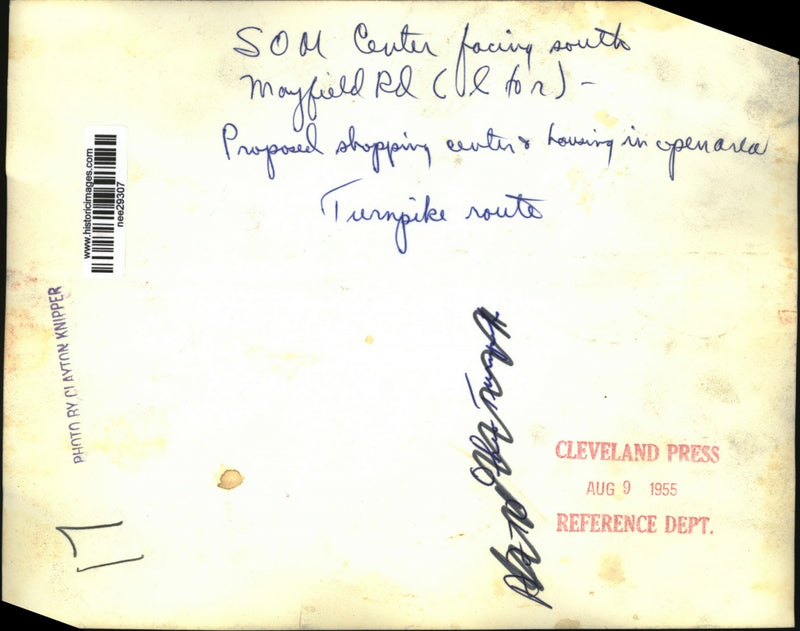 SOM Center facing south
Mayfield Rd (l to r) -
Proposed shopping center & housing in open area
Turnpike route
www.historicimages.com
nee29307
PHOTO BY CLAYTON KNIPPER
Ohio Turnpike
CLEVELAND PRESS
AUG 9 1955
REFERENCE DEPT.